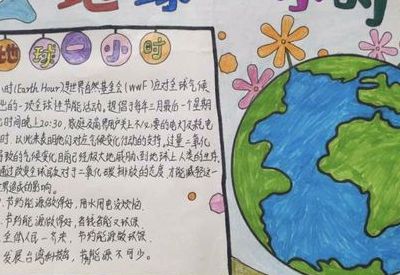 地球一小时
时(Earth Hour)是世界自然基金会(WWF)应对全球气候
出的一项全球性节能活动,提倡于每年三月最后一个星期
时间晚上20:30,家庭及商界用户关上不必要的电灯及耗电
时.以此来表明他们对应对气候变化行动的支持,过量二氧化
导致的气候变化目前已经极大地威胁到地球上人类的生存.
通过改变全球民众对于二氧化碳排放的态度,才能减轻这一
世界造成的影响。
节约能源做得好,用水用电没烦恼.
节约能源做得好,省钱省能又环保.
全体人民一齐来,节约能源做环保.
发展台湾科技岛,节能源不可少。